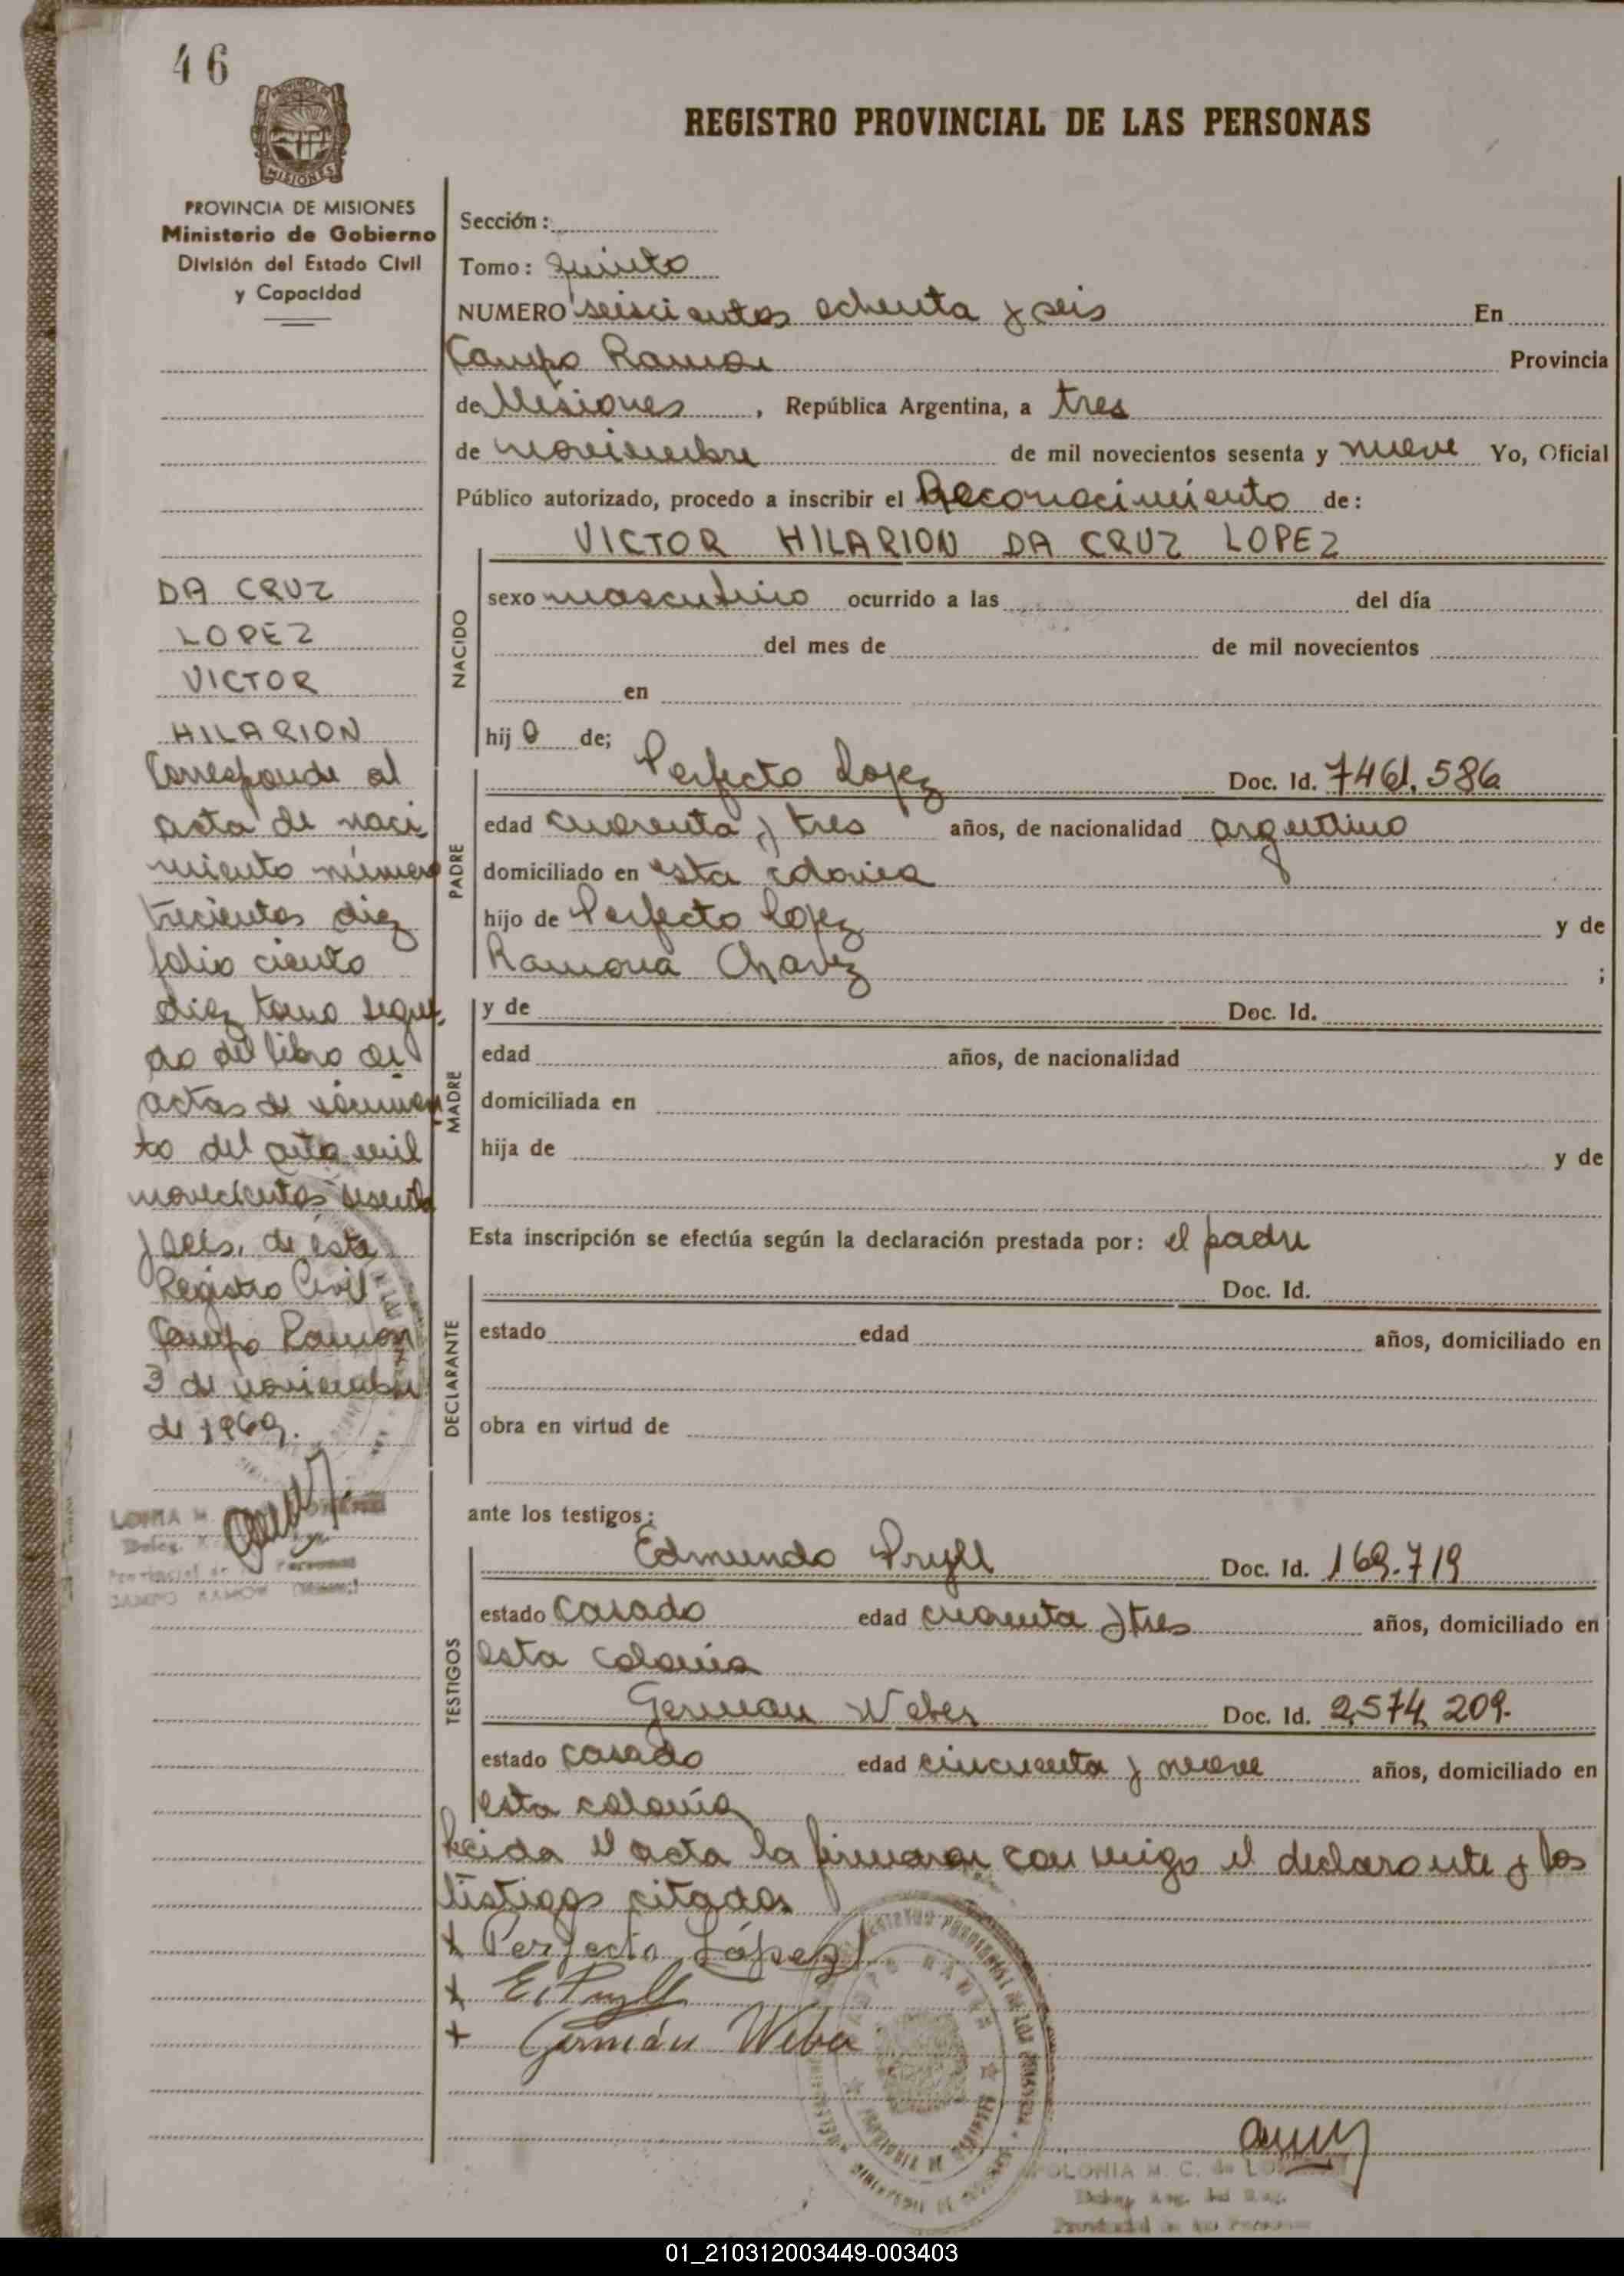 46
REGISTRO PROVINCIAL DE LAS PERSONAS
MISIONES
PROVINCIA DE MISIONES
Ministerio de Gobierno
División del Estado Civil
y Capacidad
DA CRUZ
LOPEZ
VICTOR
HILARION
Corresponde al
acta de naci
miento número
trecientos diez
folio ciento
diez tomo segun
do del libro de
actas de
to del año mil
novecientos sesenta
y seis, de este
Registro Civil
Campo Ramon
3 de noviembre
de 1969.
CAMPO RAMON
Sección:
Tomo: quinto
NUMERO seiscientos ochenta y seis En
Campo Ramon Provincia
de Misiones, República Argentina, a tres
de noviembre de mil novecientos sesenta y nueve Yo, Oficial
Público autorizado, procedo a inscribir el Reconocimiento de:
VICTOR HILARION DA CRUZ LOPEZ
NACIDO
sexo masculino ocurrido a las del día
del mes de de mil novecientos
en
hijo de;
PADRE
Perfecto Lopez Doc. Id. 7461.586
edad cuarenta y tres años, de nacionalidad argentino
domiciliado en esta colonia
hijo de Perfecto Lopez y de
Ramona Chavez ;
MADRE
y de Doc. Id.
edad años, de nacionalidad
domiciliada en
hija de y de
Esta inscripción se efectúa según la declaración prestada por: el padre
DECLARANTE
Doc. Id.
estado edad años, domiciliado en
obra en virtud de
ante los testigos:
TESTIGOS
Edmundo Pryll Doc. Id. 169.719
estado casado edad cuarenta y tres años, domiciliado en
esta colonia
German Weber Doc. Id. 2,574,209.
estado casado edad cincuenta y nueve años, domiciliado en
esta colonia
Leida el acta la firmaron con migo el declarante y los
testigos citados
x Perfecto López
x E. Pryll
+ Germán Weber
CAMPO RAMON
POLONIA M. C. de
01_210312003449-003403